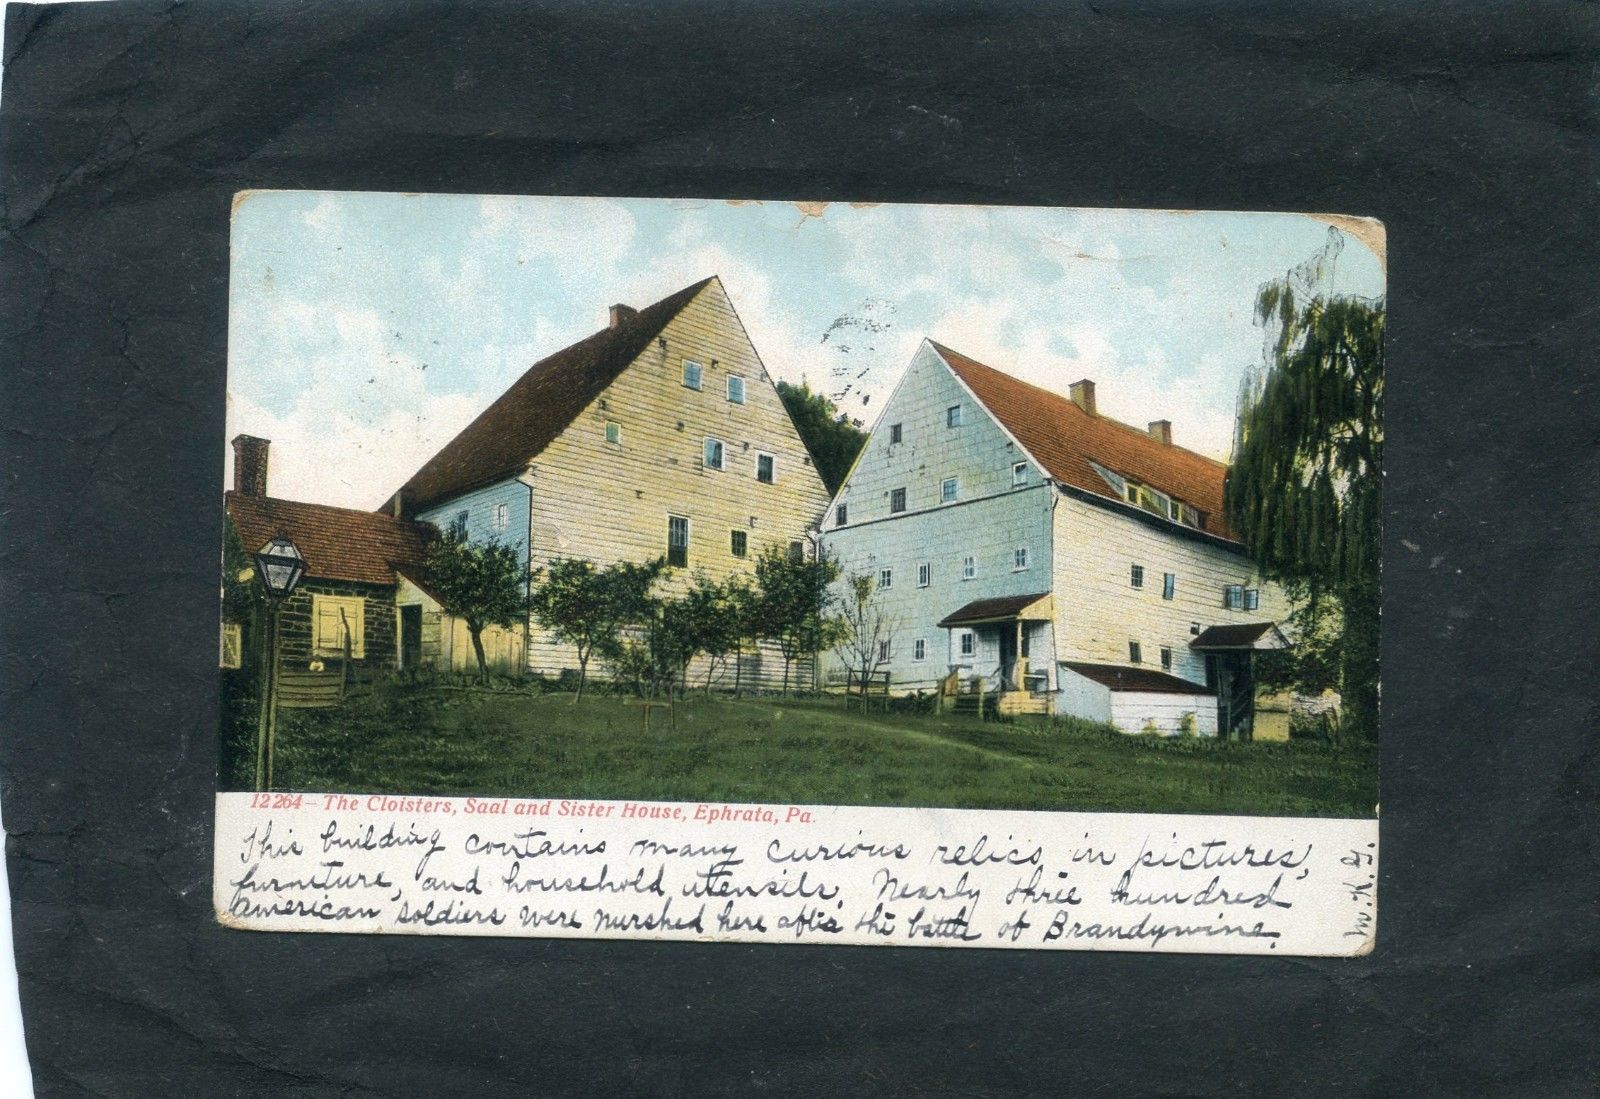 12264 – The Cloisters, Saal and Sister House, Ephrata, Pa.
This building contains many curious relics in pictures,
furniture, and household utensils. Nearly three hundred
American soldiers were nurshed here after the battle of Brandywine.